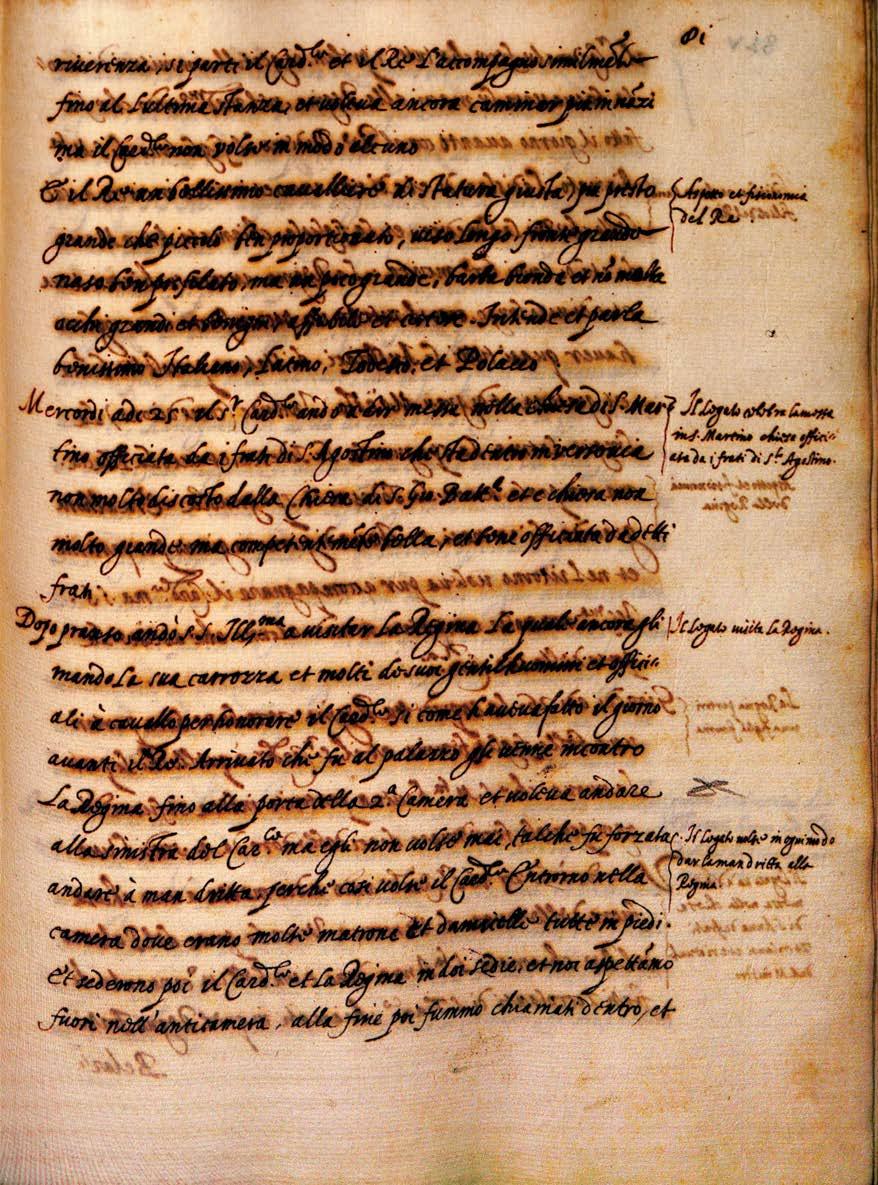 81
riverenza, si parti il Card.le et il Re l'accompagno similme.te
fino al l'ultima stanza, et voleva ancora caminar piu innãzi
ma il Card.le non volse in modo alcuno
È il Re un bellissimo cavalliere di statura giusta, piu presto
grande che piccolo ben proportionato, viso longo fronte grande
naso ben profilato, ma un poco grande, barba bionda et nõ molta
occhi grandi et benigni, affabile et cortese. Intende et parla
benissimo Italiano, Latino, Todesco, et Polacco
Aspetto et fisionomia
del Re.
Mercordi adi 25. il s.r Card.le andò a dir messa nella chiesa di S. Mar-
tino officiata da i frati di S. Agostino che sta dentro in
non molto discosto dalla Chiesa di S. Gio. Batt.a et e chiesa non
molto grande ma competentemẽte bella, et bene officiata da detti
frati.
Il Legato celebra la messa
in S. Martino chiesa offici-
ata da i frati di S.to Agostino.
Dopo pranso andò S. S. Ill.ma a visitar La Regina La quale ancora gli
mandò la sua carrozza et molti de suoi gentilhuomini et offici-
ali à cavallo per honorare il Card.le si come haveva fatto il giorno
avanti il Re. Arrivato che fu al palazzo gli venne incontro
La Regina fino alla porta della 2.a Camera et voleva andare
alla sinistra del Car.le ma egli non volse mai, talche fu forzata
andare à man dritta, perche cosi volse il Card.le Entrorno nella
camera dove erano molte matrone et damicelle tutte in piedi.
Et sederono poi il Card.le et La Regina in doi sedie, et noi aspettãmo
fuori nell'anticamera, alla fine poi fummo chiamati dentro, et
Il Legato visita La Regina.
Il Legato volse in ogni modo
dar la man dritta alla
Regina